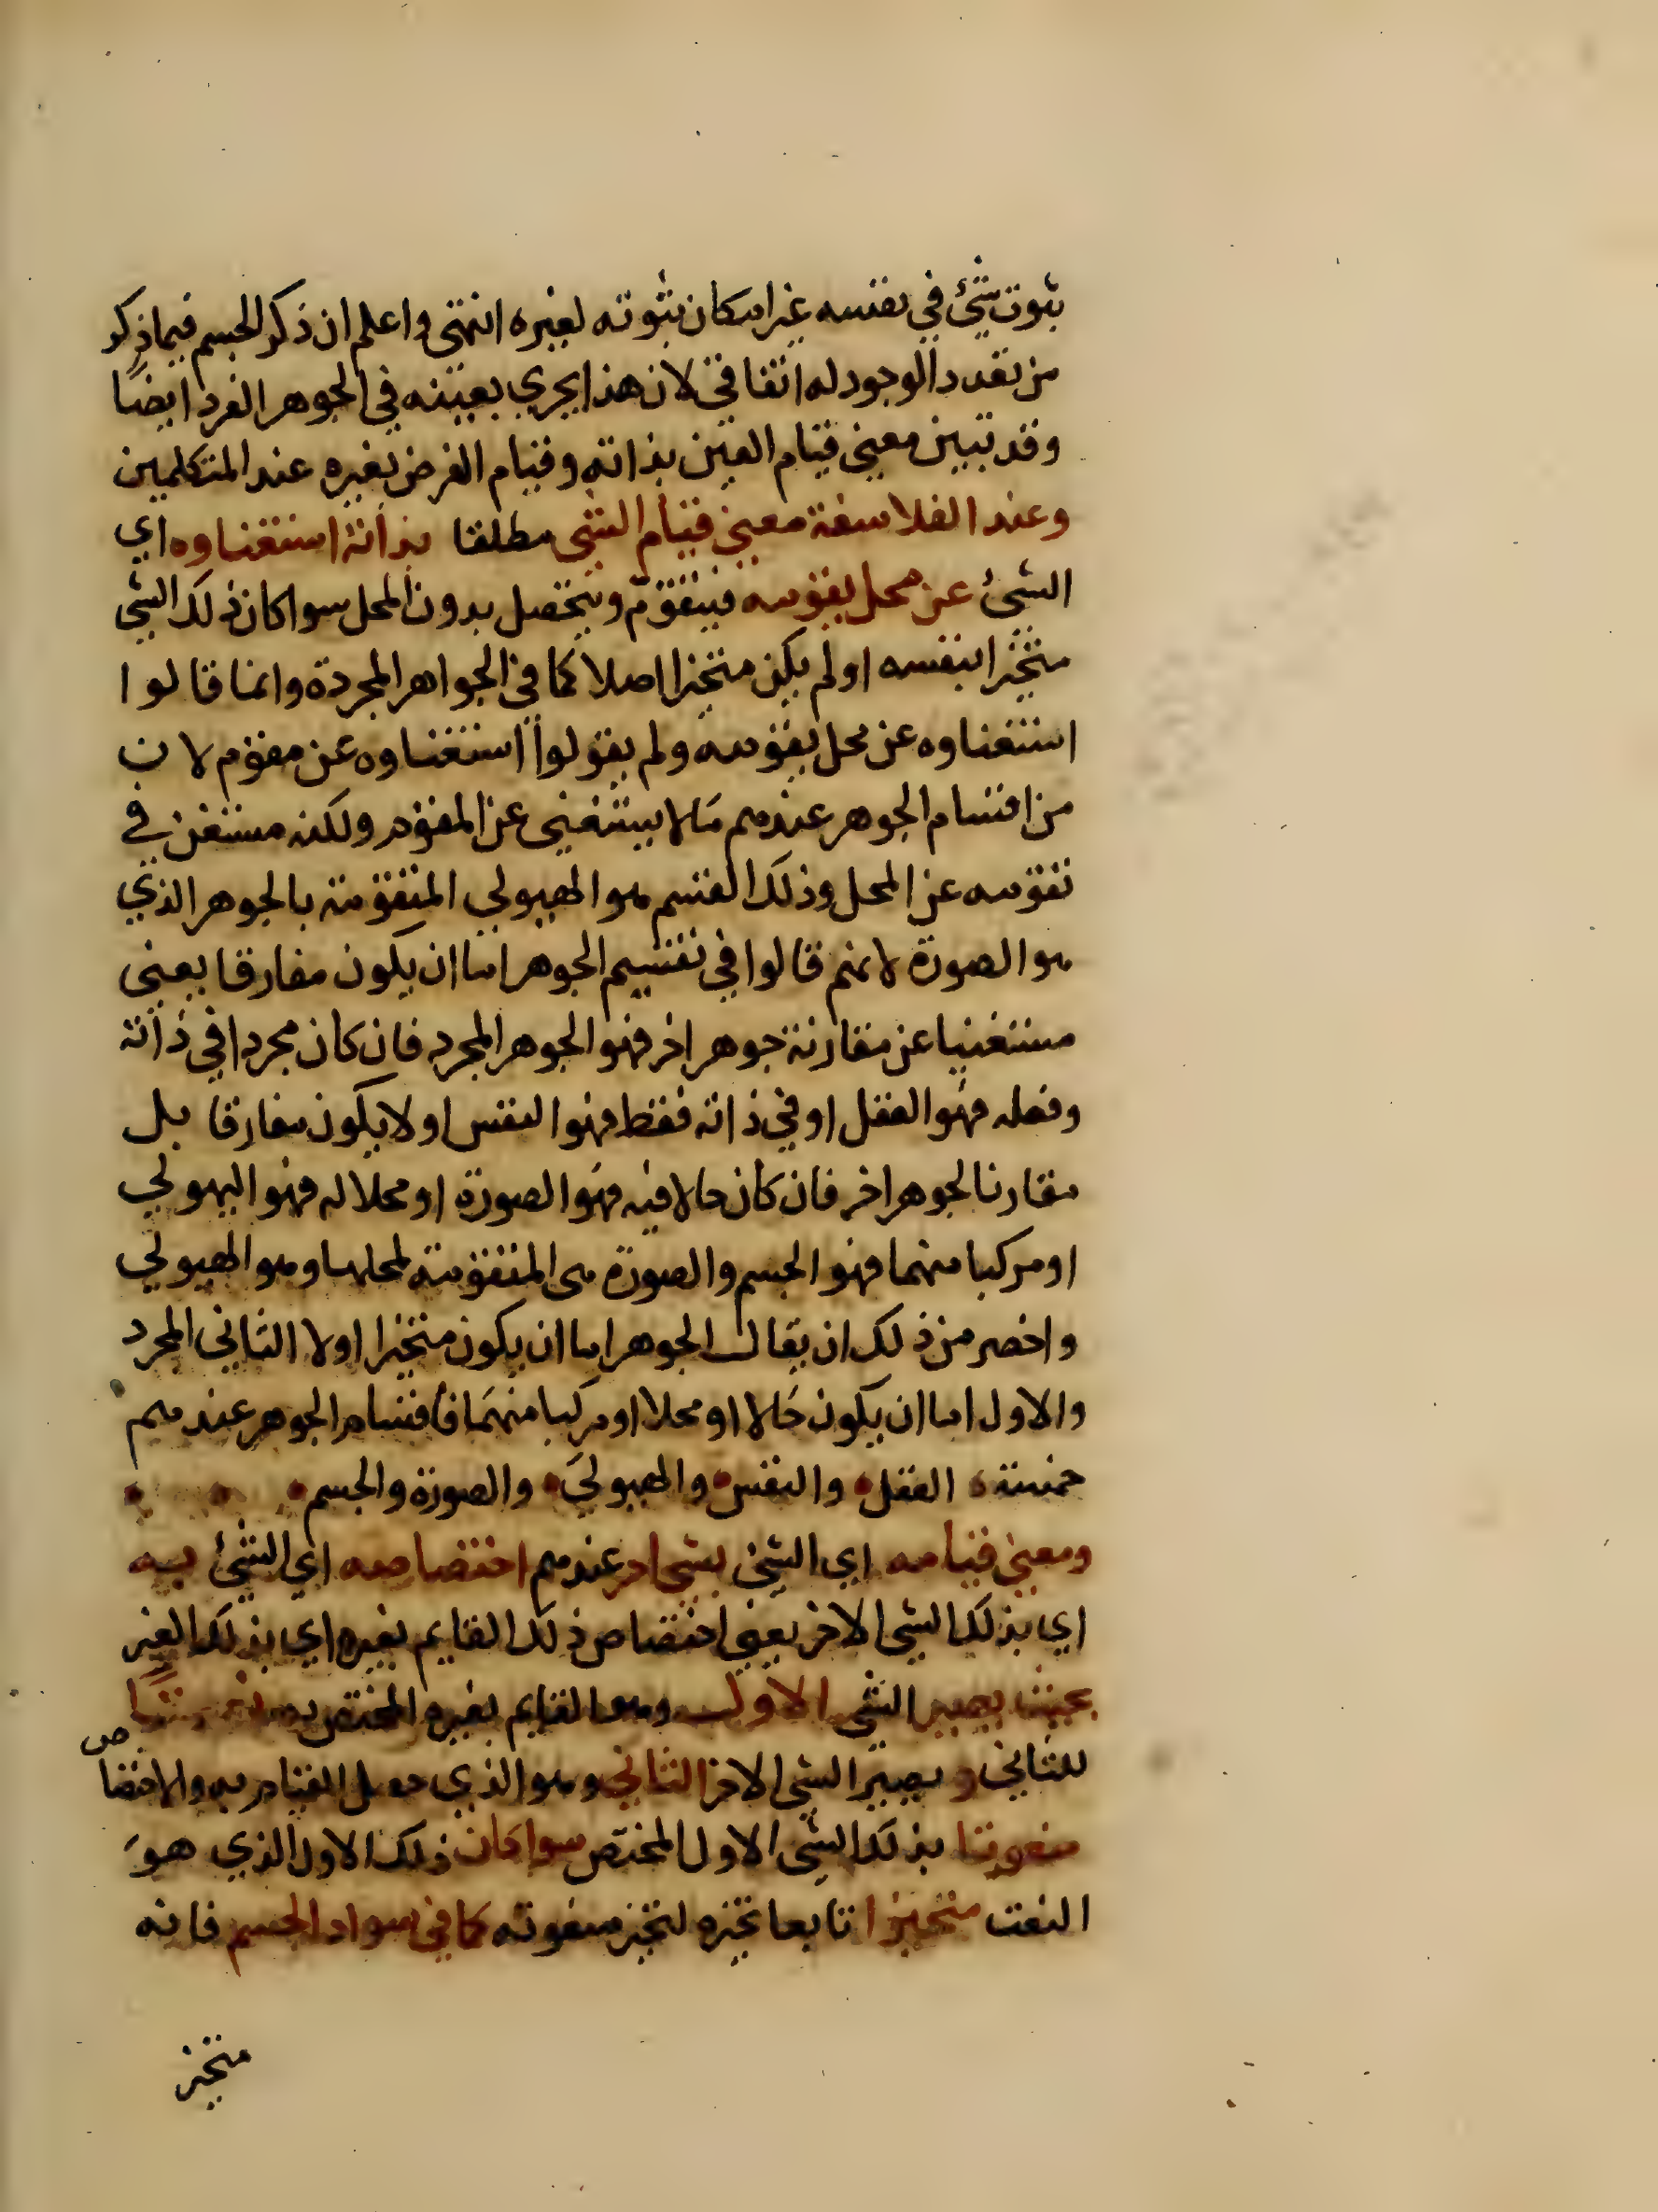 ثبوت شئ في نفسه غير امكان ثبوته لغيره انتهى واعلم ان ذكر الجسم فيما ذكر
من تعدد الوجود له اتفاقي لان هذا يجري بعينه في الجوهر الفرد ايضا
وقد تبين معنى قيام العين بذاته وقيام العرض بغيره عند المتكلمين
وعند الفلاسفة معنى قيام الشي مطلقا بذاته استغناوه اي
الشئ عن محل يقومه فيتقوم ويتحصل بدون المحل سوا كان ذلك الشي
متحيزا بنفسه او لم يكن متحيزا اصلا كما في الجواهر المجردة وانما قالوا
استغناوه عن محل يقومه ولم يقولوا استغناوه عن مقوم لان
من اقسام الجوهر عندهم مالا يستغني عن المقوم ولكنه مستغن في
تقومه عن المحل وذلك القسم هو الهيولي المتقومة بالجوهر الذي
هو الصورة لانهم قالوا في تقسيم الجوهر اما ان يكون مفارقا يعني
مستغنيا عن مقارنة جوهر اخر فهو الجوهر المجرد فان كان مجردا في ذاته
وفعله فهو العقل او في ذاته فقط فهو النفس او لا يكون مفارقا بل
مقارنا لجوهر اخر فان كان حالا فيه فهو الصورة او محلا له فهو الهيولي
او مركبا منهما فهو الجسم والصورة هي المتقومة لمحلها وهو الهيولي
واخصر من ذلك ان يقال الجوهر اما ان يكون متحيزا اولا الثاني المجرد
والاول اما ان يكون حالا او محلا او مركبا منهما فأقسام الجوهر عندهم
خمسة العقل والنفس والهيولي والصورة والجسم
ومعنى قيامه اي الشئ بشي اخر عندهم اختصاصه اي الشئ به
اي بذلك الشي الاخر يعني اختصاص ذلك القايم بغيره اي بذلك الغير
بحيث يصير الشي الاول وهو القايم بغيره المختص به نعتا
للثاني و يصير الشي الاخر الثاني وهو الذي حصل القيام به والاختصاص
منعوتا بذلك الشي الاول المختص سوا كان ذلك الاول الذي هو
النعت متحيزا تابعا تحيزه لتحيز منعوته كما في سواد الجسم فانه
متحيز